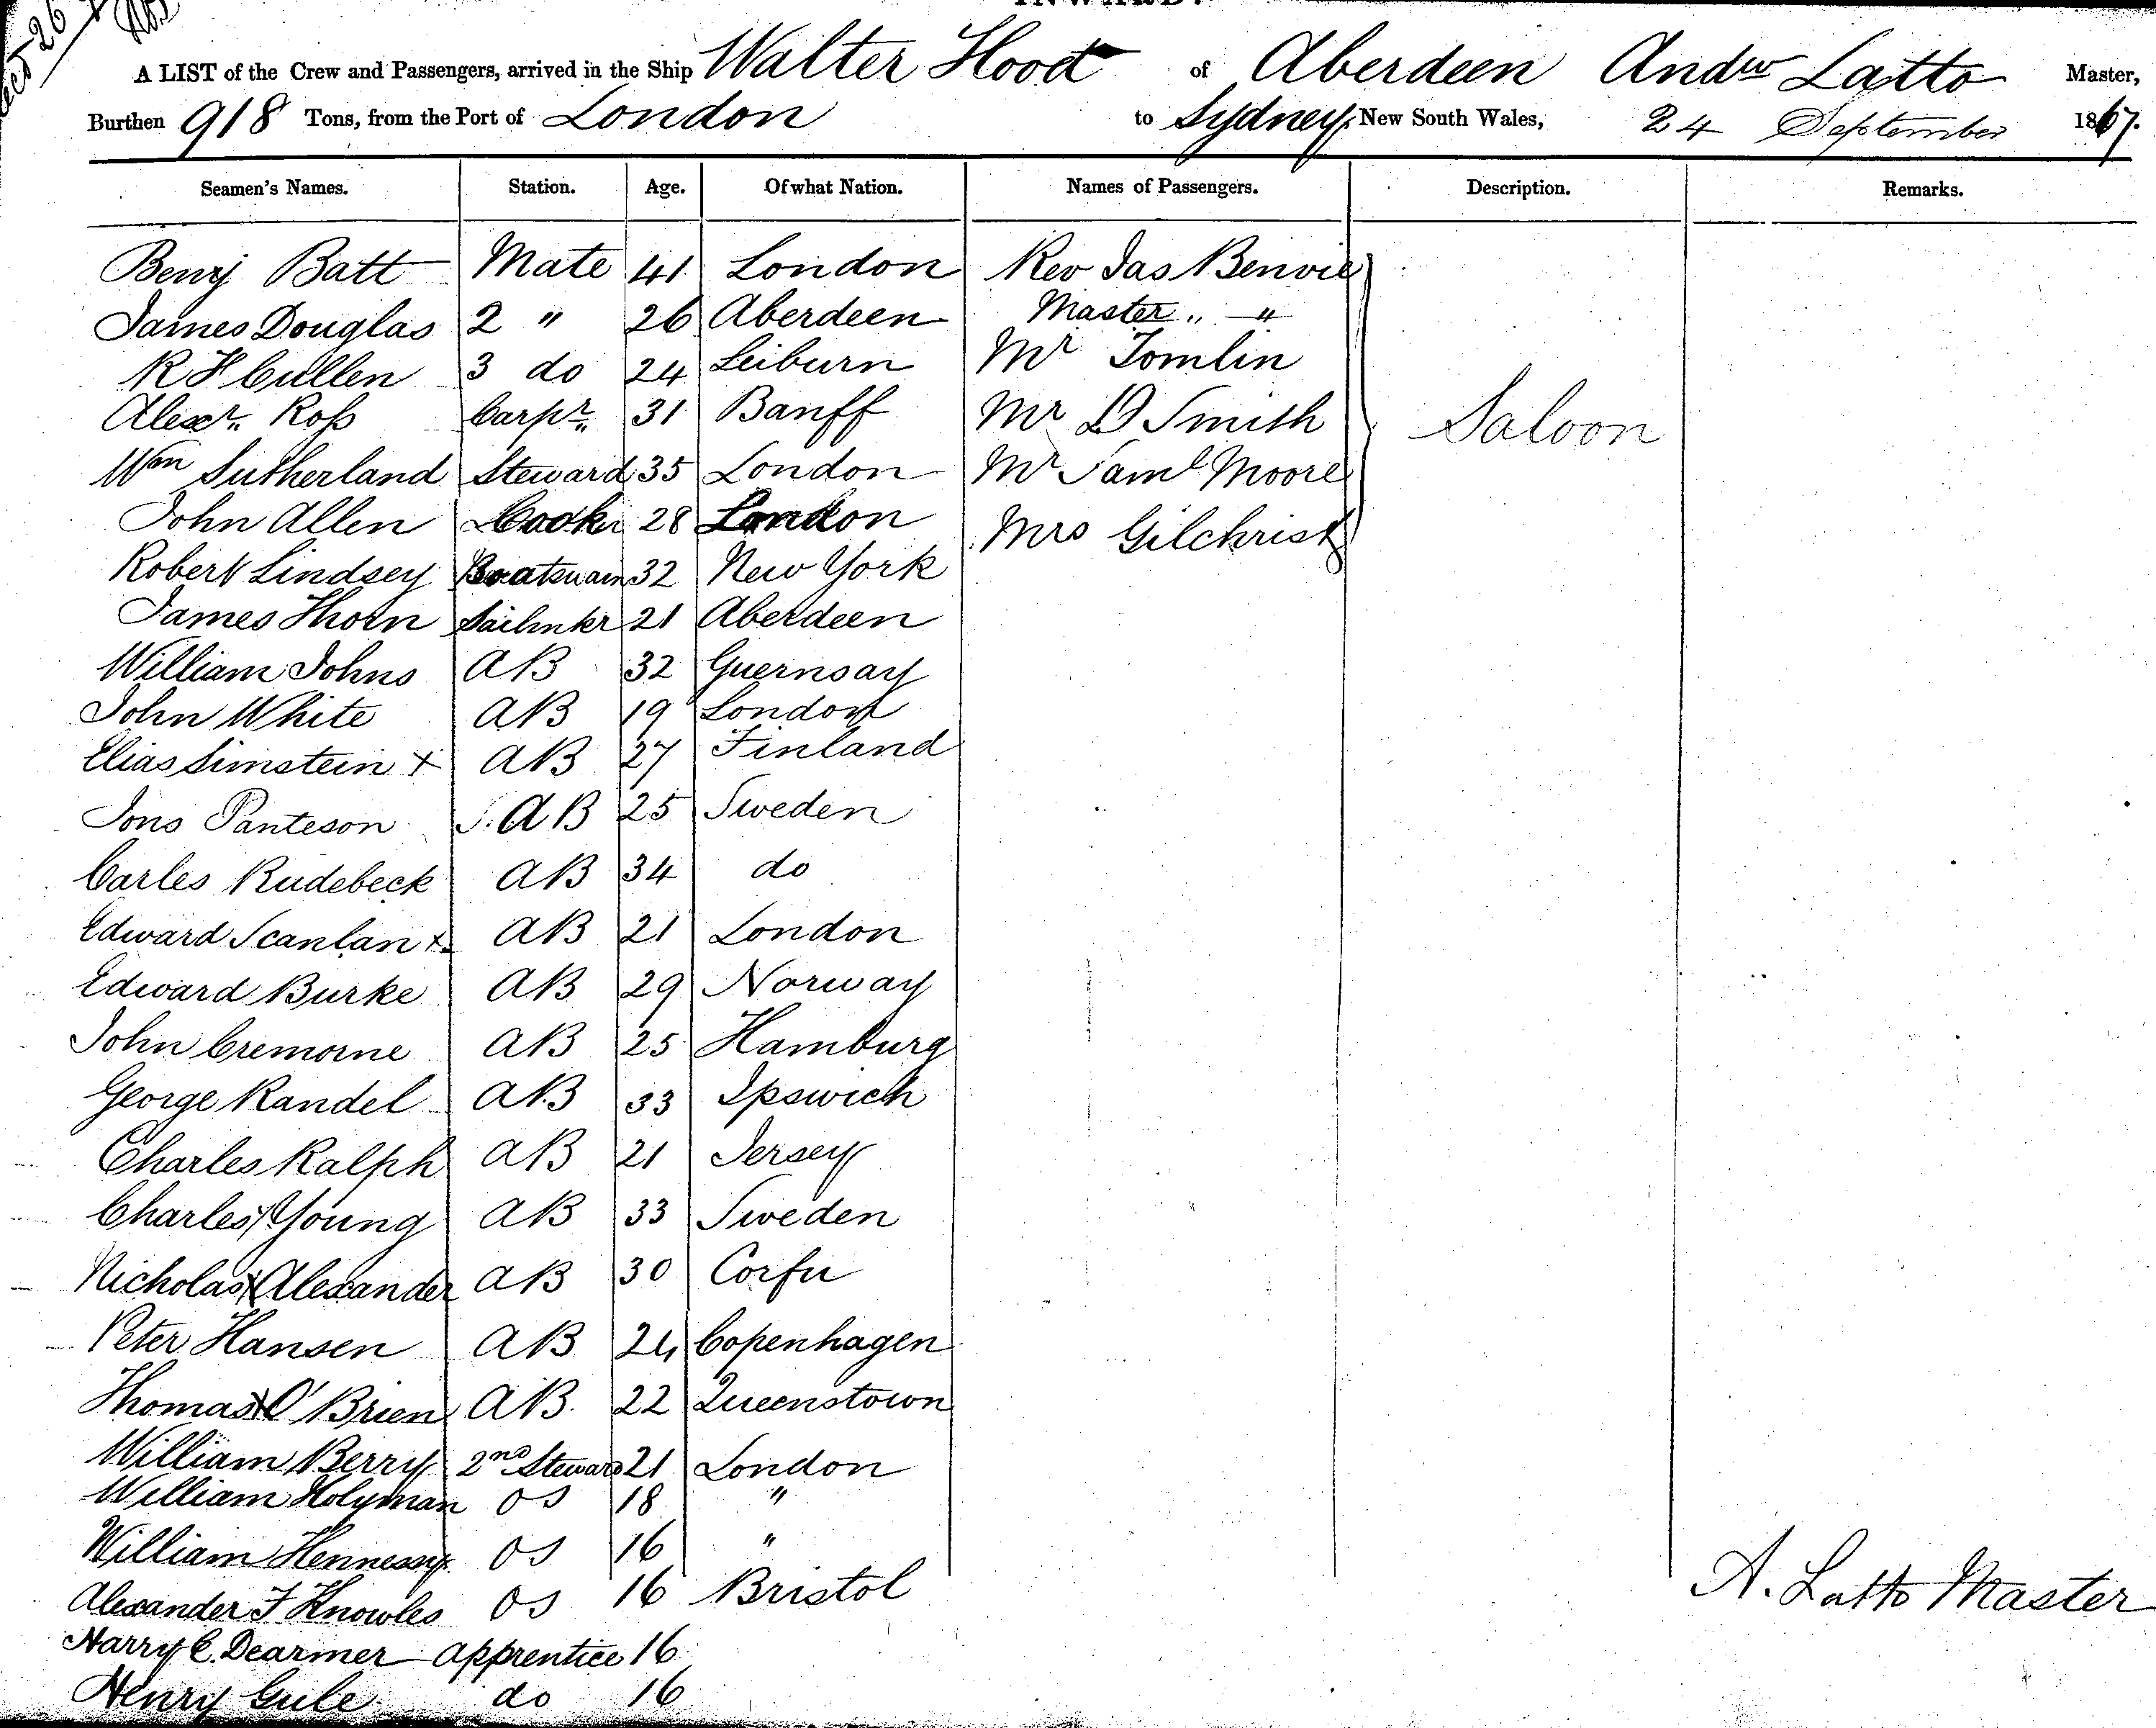 INWARD.
A LIST of the Crew and Passengers, arrived in the Ship Walter Hood of Aberdeen Andw Latto Master,
Burthen 918 Tons, from the Port of London to Sydney, New South Wales, 24 September 1867.
Seamen's Names. Station. Age. Of what Nation. Names of Passengers. Description. Remarks.
Benj Batt Mate 41 London Rev Jas Benvie
James Douglas 2 " 26 Aberdeen Master " — "
R H Cullen 3 do 24 Leiburn Mr Tomlin
Alexr. Ross Carpr. 31 Banff Mr D Smith Saloon
Wm Sutherland Steward 35 London Mr Saml Moore
John Allen Cook 28 London Mrs Gilchrist
Robert Lindsey Boatswain 32 New York
James Thorn Sailmkr 21 Aberdeen
William Johns AB 32 Guernsay
John White AB 19 London
Elias Simstein + AB 27 Finland
Jons Panteson AB 25 Sweden
Carles Rudebeck AB 34 do
Edward Scanlan + AB 21 London
Edward Burke AB 29 Norway
John Cremorne AB 25 Hamburg
George Randel AB 33 Ipswich
Charles Ralph AB 21 Jersey
Charles Young AB 33 Sweden
Nicholas X Alexander AB 30 Corfu
Peter Hansen AB 24 Copenhagen
Thomas X O'Brien AB 22 Queenstown
William Berry 2nd Steward 21 London
William Holyman OS 18 "
William Hennessy OS 16 "
Alexander F Knowles OS 16 Bristol A. Latto Master
Harry C. Dearmer apprentice 16
Henry Gule do 16